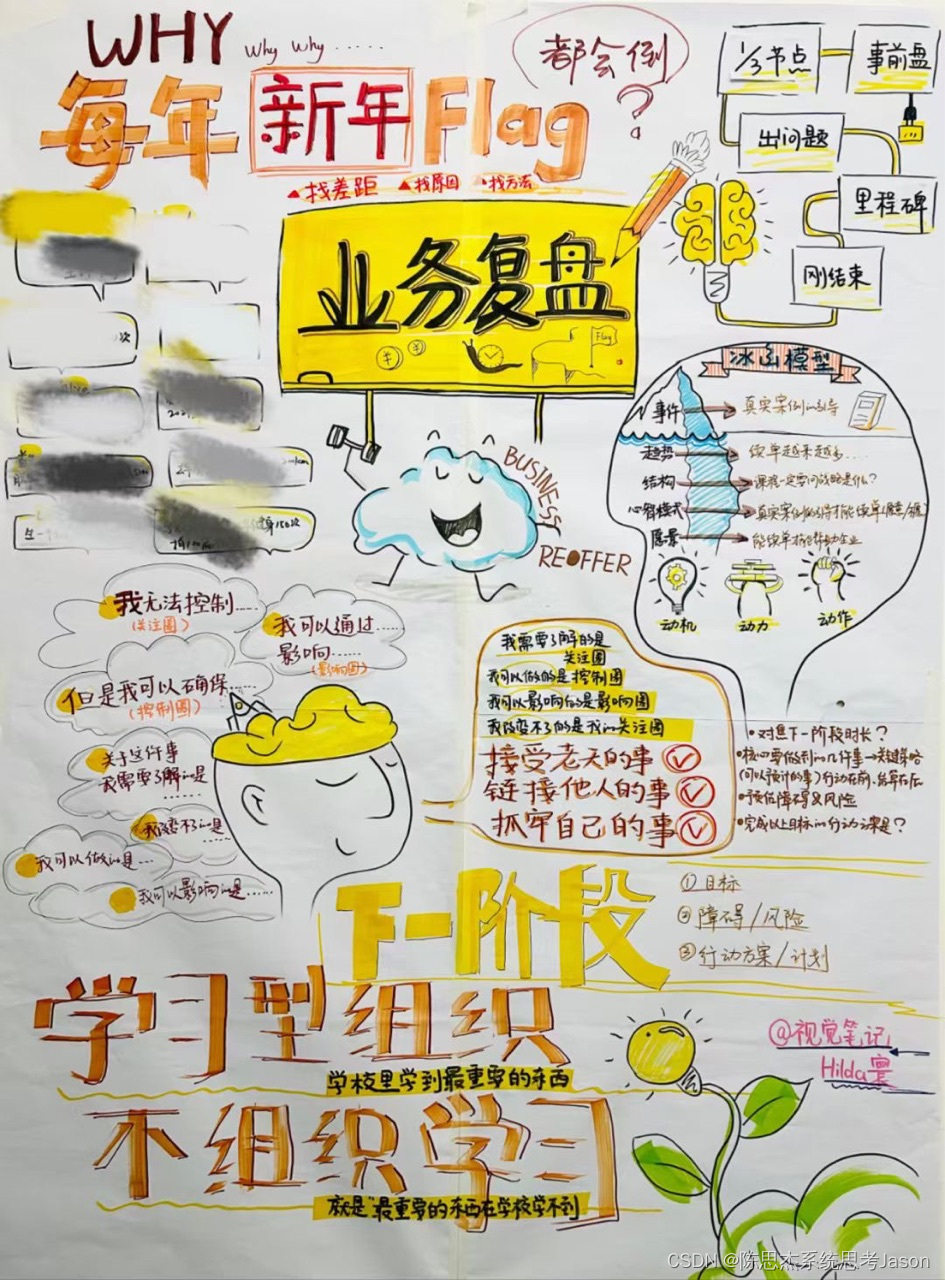 WHY
Why Why ......
每年新年Flag
都会倒
?
▲找差距 ▲找原因 ▲找方法
1/3节点
事前盘
出问题
里程碑
刚结束
业务复盘
¥
¥
Flag
BUSINESS
REOFFER
冰山模型
事件
真实案例的引导
趋势
续单越来越多....
结构
课程一定要问的是什么?
心智模式
愿景
动机
动力
动作
次
我无法控制......
(关注圈)
我可以通过
影响......
(影响圈)
但是我可以确保...
(控制圈)
关于这件事
我需要了解的是
......
我改变不了的是...
我可以做的是...
我可以影响的是......
我需要了解的是
关注圈
我可以做的是控制圈
我可以影响的是影响圈
我改变不了的是我的关注圈
接受老天的事
链接他人的事
抓牢自己的事
•对焦下一阶段时长?
•核心要做到的几件事→关键策略
(可以预计的事)行动在前,
•预估障碍&风险
•完成以上目标的行动方案是?
下一阶段
①目标
②障碍/风险
③行动方案/计划
学习型组织
学校里学到最重要的东西
不组织学习
就是"最重要的东西在学校学不到
@视觉笔记
Hilda
CSDN @陈思杰系统思考Jason